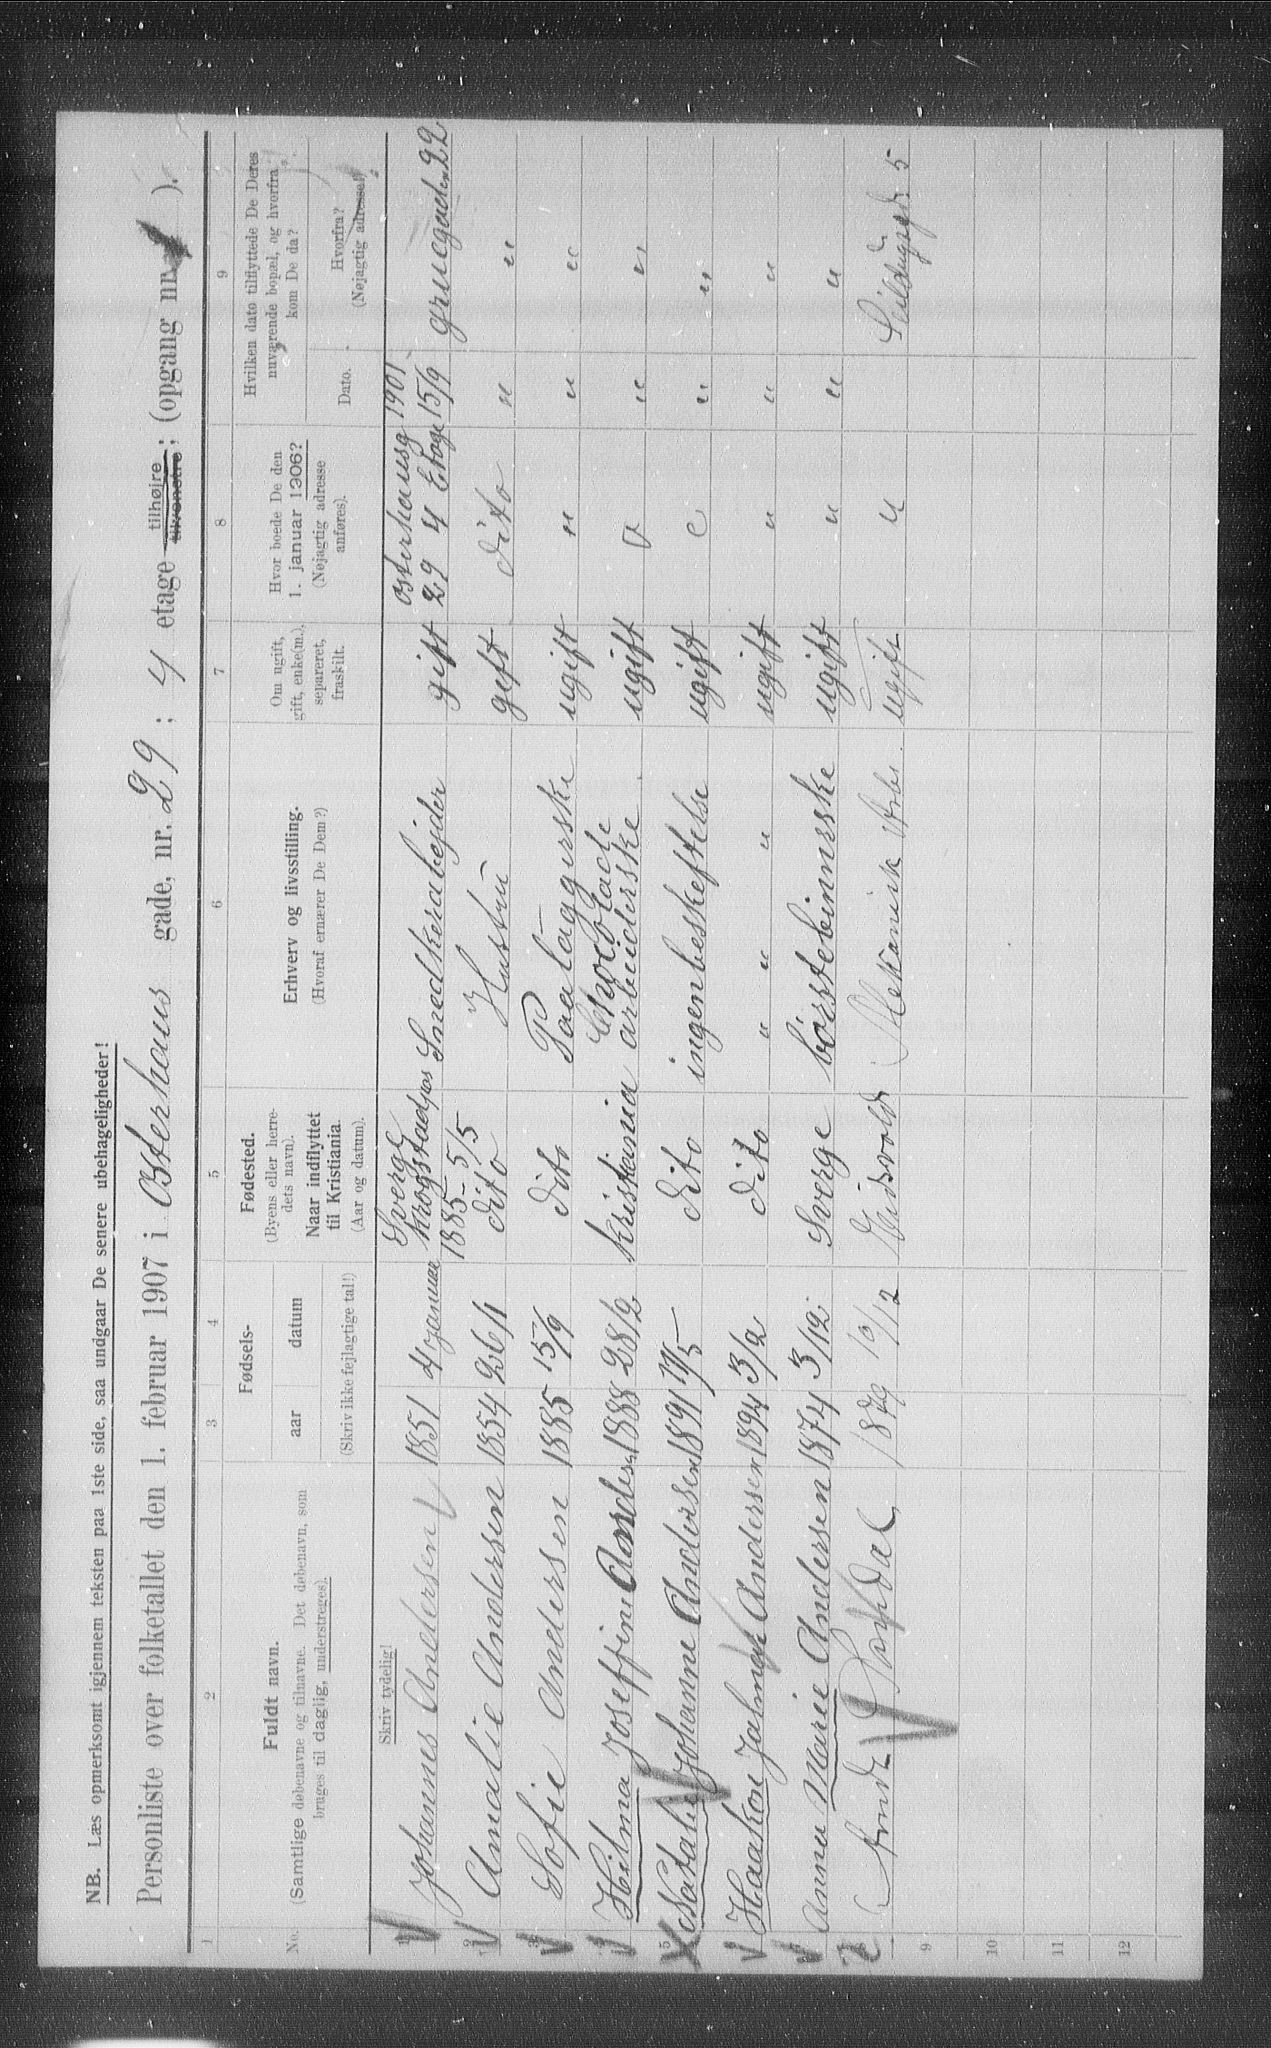 NB. Læs opmerksomt igjennem teksten paa 1ste side, saa undgaar De senere ubehageligheder!
Personliste over folketallet den 1. februar 1907 i Osterhaus gade, nr. 29; 4 etage tilhøjre tilvenstre; (opgang nr. ).
1 2 3 4 5 6 7 8 9
No.
Fuldt navn.
(Samtlige døbenavne og tilnavne. Det døbenavn, som
bruges til daglig, understreges).
Fødsels-
aar datum
(Skriv ikke fejlagtige tal!)
Fødested.
(Byens eller herre-
dets navn).
Naar indflyttet
til Kristiania.
(Aar og datum).
Erhverv og livsstilling.
(Hvoraf ernærer De Dem?)
Om ugift,
gift, enke(m.),
separeret,
fraskilt.
Hvor boede De den
1. januar 1906?
(Nøjagtig adresse
anføres).
Hvilken dato tilflyttede De Deres
nuværende bopæl, og hvorfra
kom De da?
Dato.
Hvorfra?
(Nøjagtig adresse!)
Skriv tydelig!
1 Johannes Andersen 1851 4 januar Sverge Krogstad 1885-5/5 Smedkerabejder gift Osterhausg 29 4 Etage 1901 15/9 gruegaden 22
2 Amalie Andersen 1854 26/1 dito Hustru gift dito " "
3 Sofie Andersen 1885 15/9 dito Paalæggerske ugift " " "
4 Hilma Joseffine Andersen 1888 28/2 Kristiania Chocolade arbeiderske ugift " " "
5 Natalie Johanne Andersen 1891 11/5 dito ingenbeskeftelse ugift " " "
6 Haakon Jalmar Andersen 1894 3/2 dito " " " ugift " " "
7 Anna Marie Andersen 1874 3/12 Sverge börstebinnrske ugift " " "
8 1879 10/12 Eidsvold Mekanisk Arb. ugift " 5
9
10
11
12